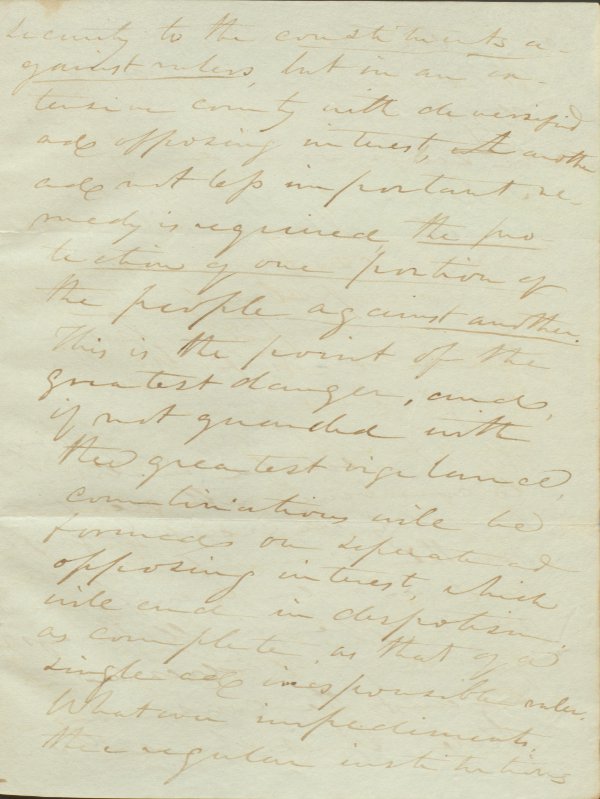 security to the constituents a-
gainst rulers, but in an ex-
tensive county with diversified
and opposing interest, another
and not less important re-
medy is required the pro-
tection of one portion of
the people against another.
This is the point of the
greatest danger, and,
if not guarded with
the greatest vigilance,
combinations will be
formed on seperate and
opposing interest, which
will end in despotism,
as complete, as that of a
single and irresponsible ruler.
Whatever impediments,
the regular institutions